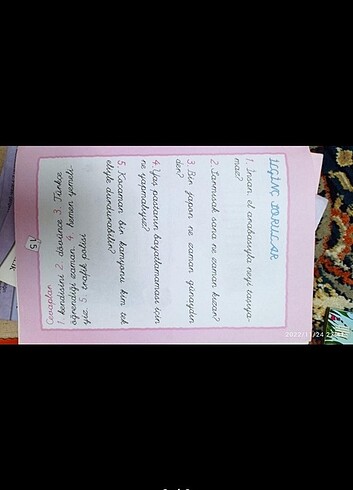 İLGİNÇ SORULAR
1. İnsan el arabasıyla neyi taşıya-
maz?
2. Sarımsak sana ne zaman kızar?
3. Bir japon ne zaman günaydın
der?
4. Yaş pastanın bayatlamaması için
ne yapmalıyız?
5. Kocaman bir kamyonu kim tek
eliyle durdurabilir?
Cevaplar
1. kendisini 2. dövünce 3. Türkçe
öğrendiği zaman 4. hemen yemeli-
yiz 5. trafik polisi
15